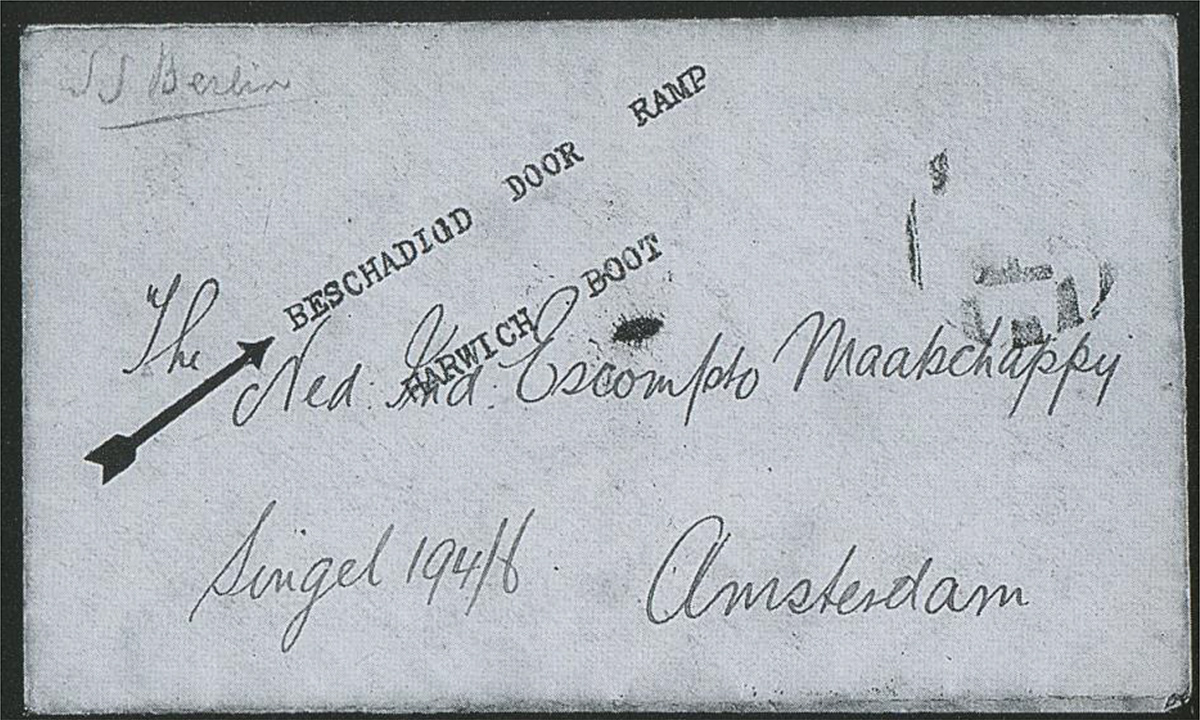 SS Berlin
BESCHADIGD DOOR RAMP
HARWICH BOOT
The Ned. Ind. Escompto Maatschappij
Singel 194/8 Amsterdam